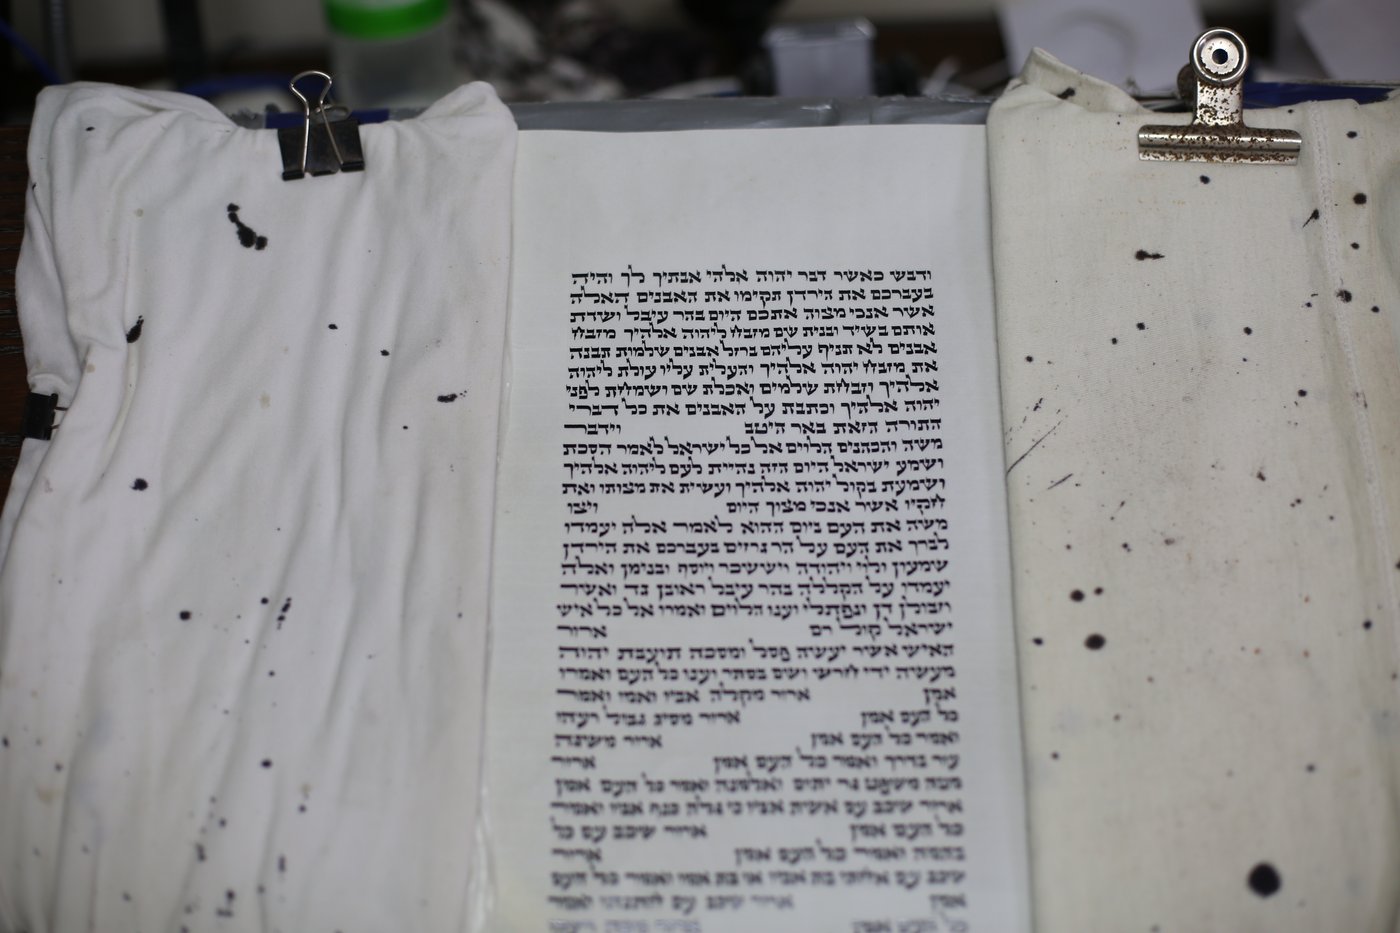 ודבש כאשר דבר יהוה אלהי אבתיך לך והיה
בעברכם את הירדן תקימו את האבנים האלה
אשר אנכי מצוה אתכם היום בהר עיבל ושדת
אותם בשיד ובנית שם מזבח ליהוה אלהיך מזבח
אבנים לא תניף עליהם ברזל אבנים שלמות תבנה
את מזבח יהוה אלהיך והעלית עליו עולת ליהוה
אלהיך וזבחת שלמים ואכלת שם ושמחת לפני
יהוה אלהיך וכתבת על האבנים את כל דברי
התורה הזאת באר היטב וידבר
משה והכהנים הלוים אל כל ישראל לאמר הסכת
ושמע ישראל היום הזה נהיית לעם ליהוה אלהיך
ושמעת בקול יהוה אלהיך ועשית את מצותו ואת
חקיו אשר אנכי מצוך היום ויצו
משה את העם ביום ההוא לאמר אלה יעמדו
לברך את העם על הר גרזים בעברכם את הירדן
שמעון ולוי ויהודה ויששכר ויוסף ובנימן ואלה
יעמדו על הקללה בהר עיבל ראובן גד ואשר
וזבולן דן ונפתלי וענו הלוים ואמרו אל כל איש
ישראל קול רם ארור
האיש אשר יעשה פסל ומסכה תועבת יהוה
מעשה ידי חרש ושם בסתר וענו כל העם ואמרו
אמן ארור מקלה אביו ואמו ואמר
כל העם אמן ארור מסיג גבול רעהו
ואמר כל העם אמן ארור משגה
עור בדרך ואמר כל העם אמן ארור
מטה משפט גר יתום ואלמנה ואמר כל העם אמן
ארור שכב עם אשת אביו כי גלה כנף אביו ואמר
כל העם אמן ארור שכב עם כל
בהמה ואמר כל העם אמן ארור
שכב עם אחתו בת אביו או בת אמו ואמר כל העם
אמן ארור שכב עם חתנתו ואמר
כל העם אמן